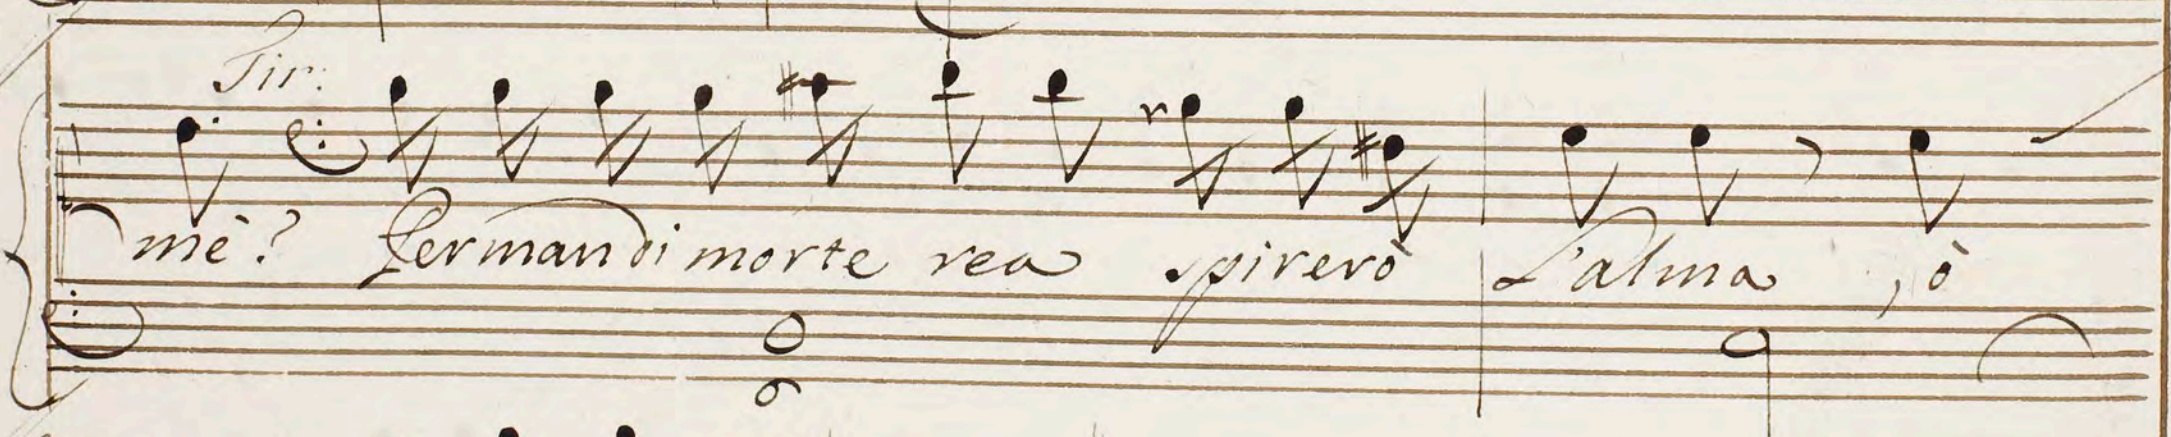 Tir:
mè? Per man di morte rea spirerò L'alma, ò
6